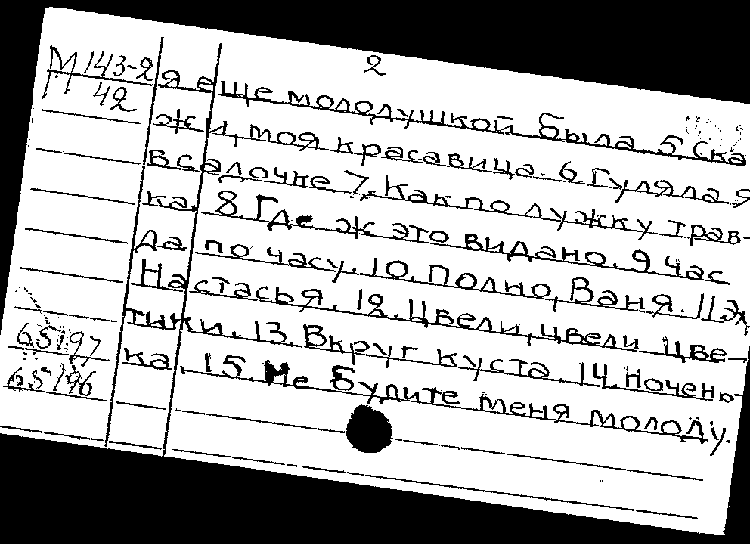 2
М 143-2
42
я еще молодушкой была. 5. Ска
жи, моя красавица. 6. Гуляла я
в садочке 7. Как по лужку трав-
ка. 8. Где ж это видано. 9. Час
да по часу. 10. Полно, Ваня. 11. Эх
Настасья. 12. Цвели, цвели цве-
тики. 13. Вкруг куста. 14. Ночень-
ка. 15. Не будите меня молоду.
65197
65196